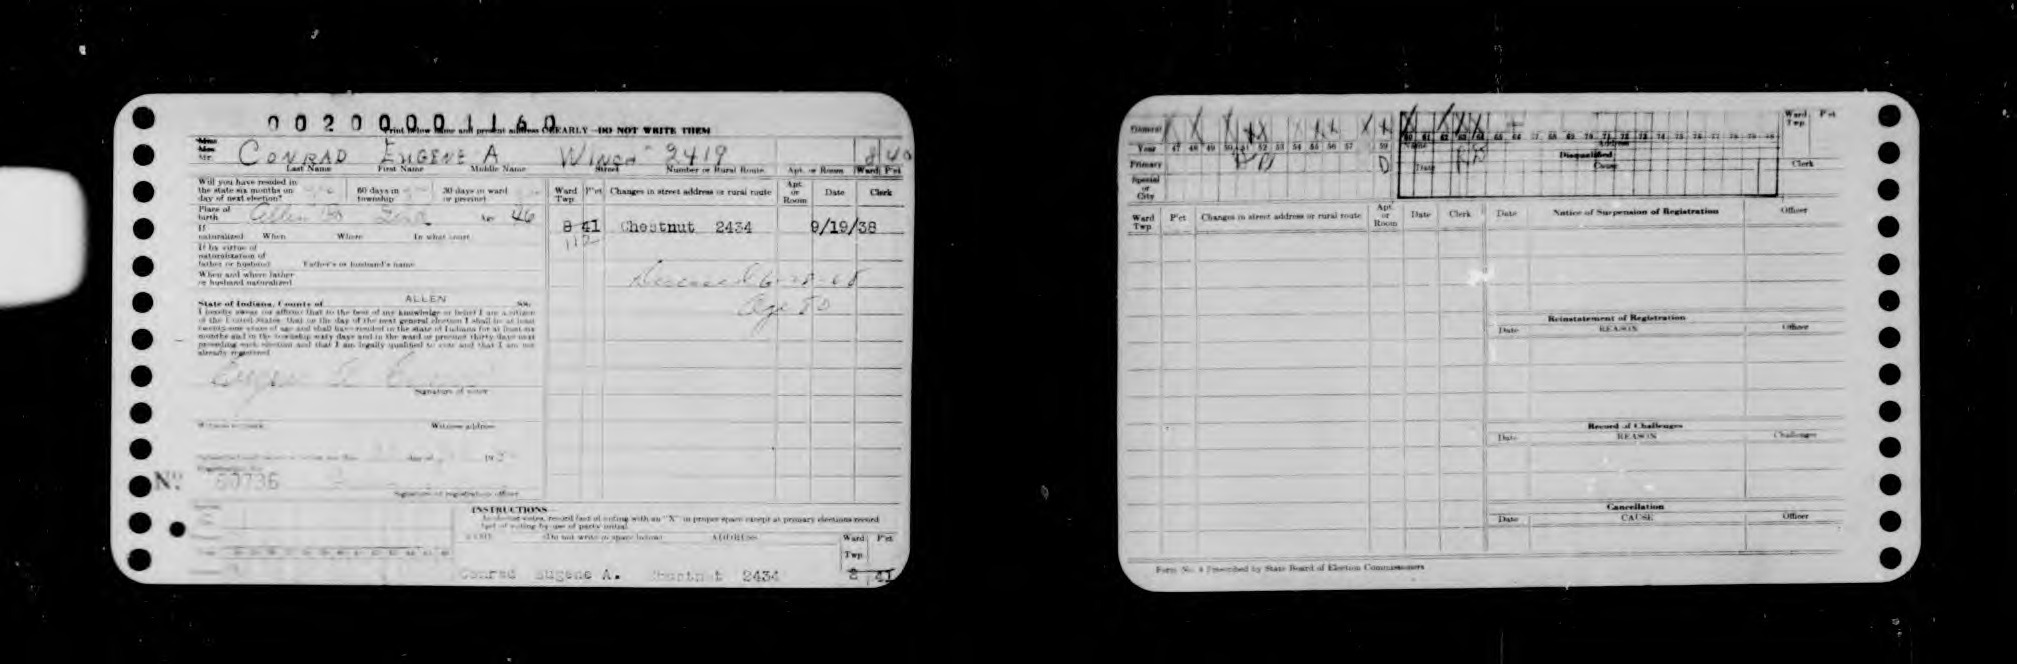 00200001160
Print below name and present address CLEARLY—DO NOT WRITE THEM
Mr. CONRAD EUGENE A WINCH 2419 8 40
Last Name First Name Middle Name Street Number or Rural Route Apt. or Room Ward P'ct
Will you have resided in the state six months on day of next election?
60 days in township
30 days in ward or precinct
Place of birth Allen Co Ind Age 46
If naturalized When Where In what court
If by virtue of naturalization of father or husband Father's or husband's name
When and where father or husband naturalized
State of Indiana, County of ALLEN ss:
I hereby swear (or affirm) that to the best of my knowledge or belief I am a citizen
of the United States, that on the day of the next general election I shall be at least
twenty-one years of age and shall have resided in the state of Indiana for at least six
months and in the township sixty days and in the ward or precinct thirty days next
preceding such election and that I am legally qualified to vote and that I am not
already registered
Eugene A
Signature of voter
Witness address
day of 19
No. 60736
Signature of registration officer
Ward Twp. P'ct Changes in street address or rural route Apt. or Room Date Clerk
8 41 Chestnut 2434 9/19/38
112
Deceased 6-28-68
Age 80
INSTRUCTIONS
At election votes, record fact of voting with an "X" in proper space except at primary elections record
fact of voting by use of party initial.
NAME (Do not write in space below) Address Ward Twp. P'ct
Conrad Eugene A. Chestnut 2434 8 41
General X X X X X X X X X X X X X X
Year 47 48 49 50 51 52 53 54 55 56 57 59 60 61 62 63 64 65 66 67 68 69 70 71 72 73 74 75 76 77 78 79
Primary D D
Special or City
Name Address
Date Disqualified Cause
Ward Twp. P'ct
Clerk
Ward Twp P'ct Changes in street address or rural route Apt. or Room Date Clerk
Date Notice of Suspension of Registration Officer
Reinstatement of Registration
Date REASON Officer
Record of Challenges
Date REASON Challenger
Cancellation
Date CAUSE Officer
Form No. 4 Prescribed by State Board of Election Commissioners